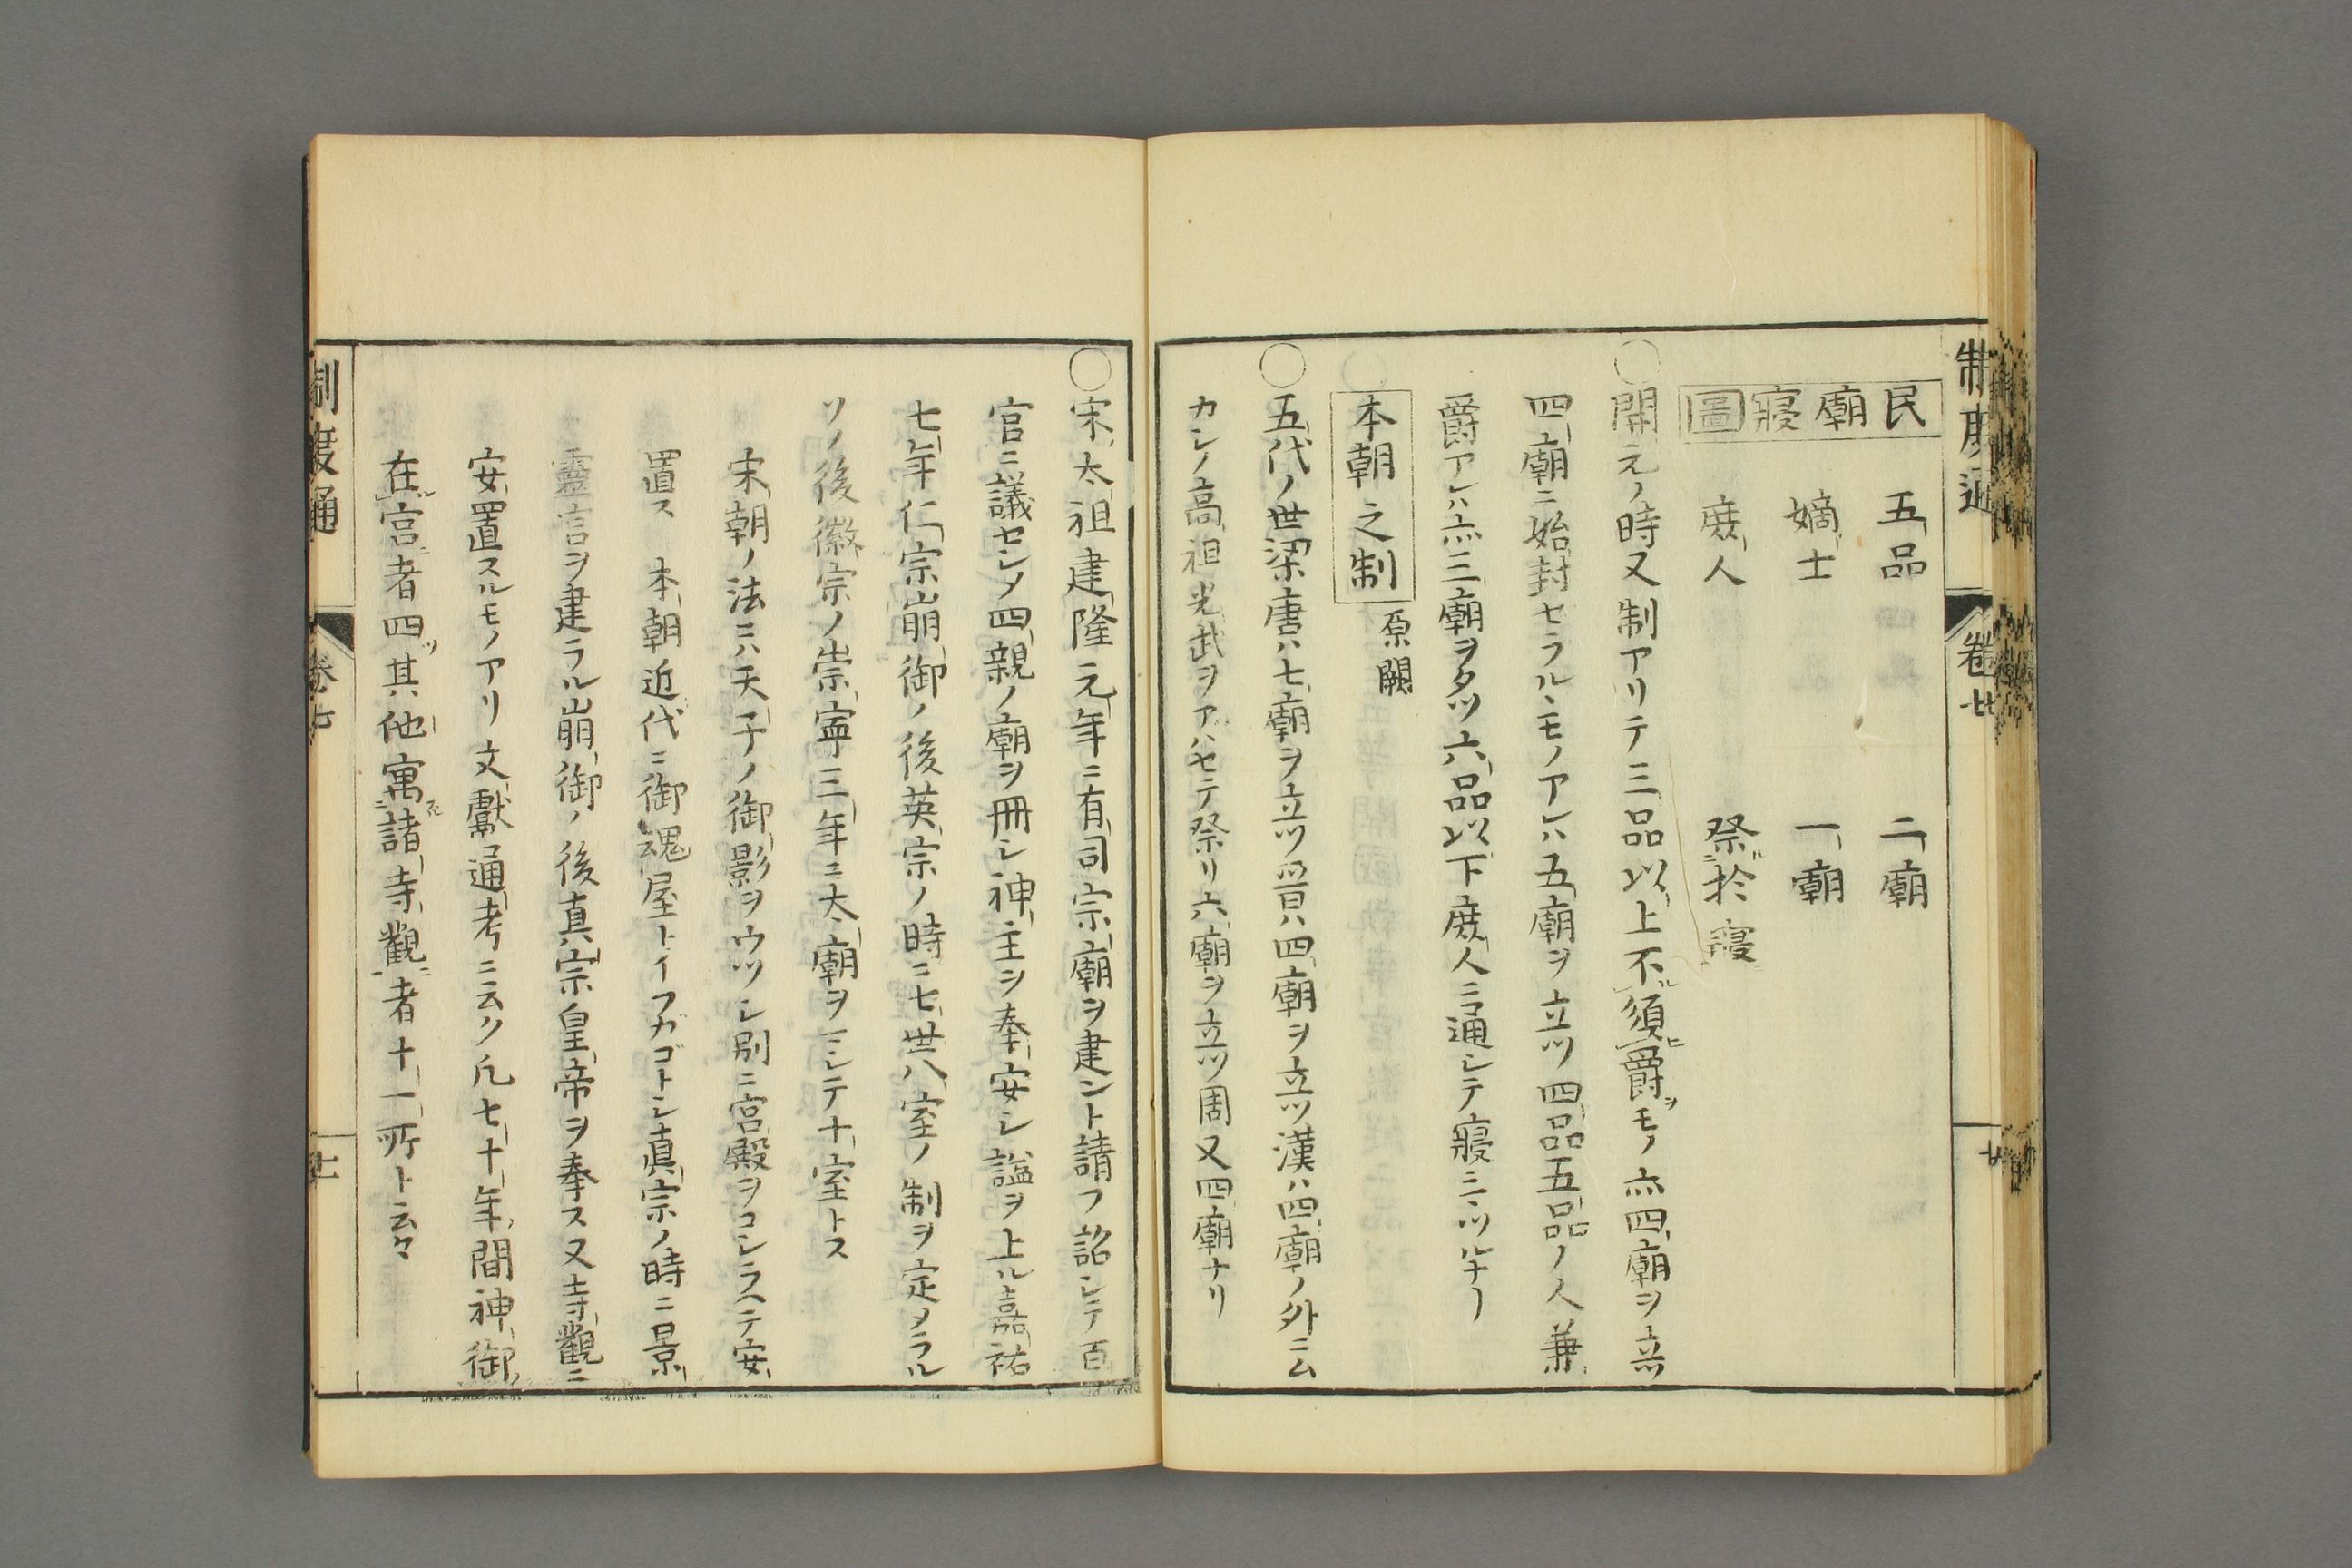 制度通
卷七
廿
民廟寢圖
五品 二廟
嫡士 一廟
庻人 祭於寢
○開元ノ時又制アリテ三品以上不須爵モノ亦四廟ヲ立ツ
四廟ニ始封セラルヽモノアレハ五廟ヲ立ツ四品五品ノ人兼
爵アレハ亦三廟ヲタツ六品以下庻人ニ通シテ寢ニマツルナリ
本朝之制 原闕
○五代ノ世梁唐ハ七廟ヲ立ツ晋ハ四廟ヲ立ツ漢ハ四廟ノ外ニム
カシノ高祖光武ヲアハセテ祭リ六廟ヲ立ツ周又四廟ナリ
○宋太祖建隆元年ニ有司宗廟ヲ建ント請フ詔シテ百
官ニ議セシメ四親ノ廟ヲ冊シ神主ヲ奉安シ謚ヲ上ル嘉祐
七年仁宗崩御ノ後英宗ノ時ニ七世八室ノ制ヲ定メラル
ソノ後徽宗ノ崇寧三年ニ太廟ヲマシテ十室トス
宋朝ノ法ニハ天子ノ御影ヲウツシ別ニ宮殿ヲコシラヘテ安
置ス 本朝近代ニ御魂屋トイフガゴトシ真宗ノ時ニ景
靈宮ヲ建ラル崩御ノ後真宗皇帝ヲ奉ス又寺觀ニ
安置スルモノアリ文獻通考ニ云ク凡七十年間神御
在宮者四其他寓諸寺觀者十一所ト云々
制度通
卷七